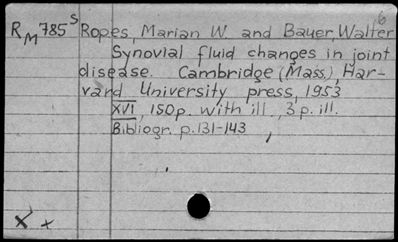 6
R M 785 S Ropes, Marian W. and Bauer, Walter
Synovial fluid changes in joint
disease. Cambridge (Mass.), Har-
vard University press, 1953
XVI, 150p. with ill., 3 p. ill.
Bibliogr. p. 131-143
x x